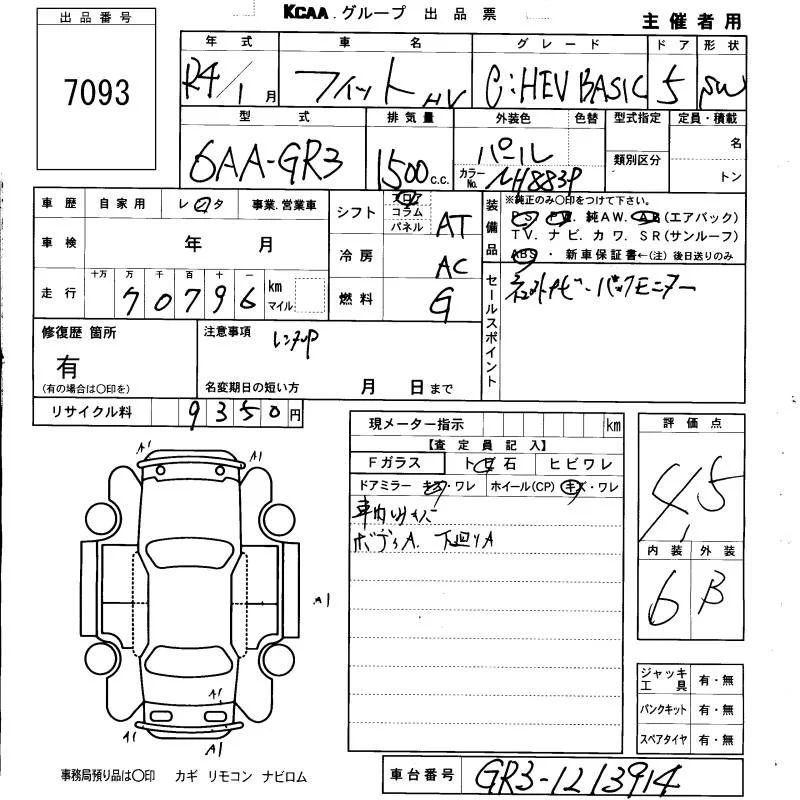 出品番号
7093
KCAA.グループ 出品票
主催者用
年式 車名 グレード ドア 形状
R4/1月 フィット HV e:HEV BASIC 5 SW
型式 排気量 外装色 色替 型式指定 定員・積載
6AA-GR3 1500c.c. パール 名
カラーNo. NH883P 類別区分 トン
車歴 自家用 レンタ 事業.営業車
車検 年 月
走行 十万 万 千 百 十 一
70796 km マイル
シフト フロア コラム パネル AT
冷房 AC
燃料 G
装備品
※純正のみ〇印をつけて下さい。
PS PW. 純AW. AB(エアバック)
TV. ナビ. カワ. SR(サンルーフ)
ABS・新車保証書←(注)後日送りのみ
セールスポイント
社外ナビ・バックモニター
修復歴 箇所
有
(有の場合は〇印を)
注意事項 レンタUP
名変期日の短い方 月 日まで
リサイクル料 9350円
現メーター指示 km
【査定員記入】
Fガラス トビ石 ヒビワレ
ドアミラー キズ・ワレ ホイール(CP) キズ・ワレ
ボディA. 下回りA
評価点
4.5
内装 外装
6 B
A1
A1
A1
A1
A1
A1
A1
ジャッキ工具 有・無
パンクキット 有・無
スペアタイヤ 有・無
事務局預り品は〇印 カギ リモコン ナビロム
車台番号 GR3-1213914